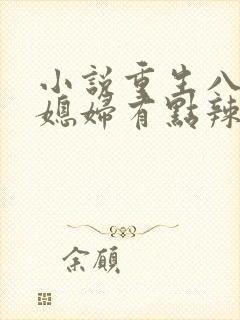 小說重生八
媳婦有點辣
余願